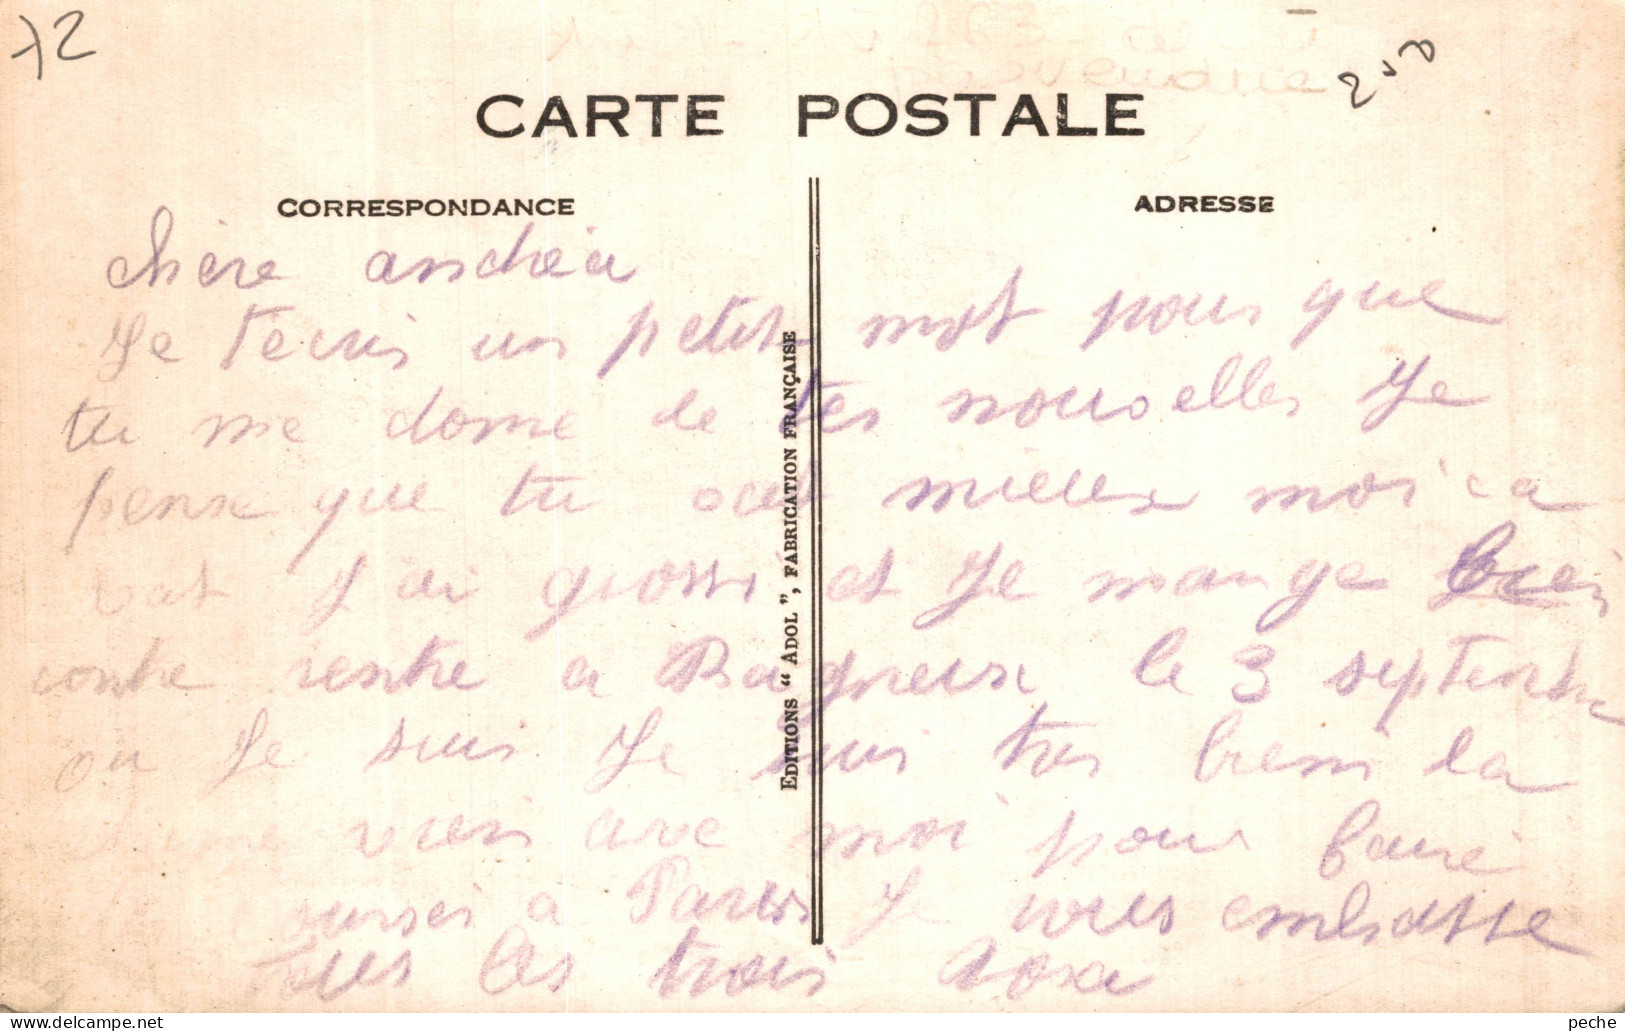 72
2,00
CARTE POSTALE
CORRESPONDANCE
ADRESSE
chère andréa
Je tecris un petit mot pour que
tu me donne de tes nouvelles Je
pense que tu mieux moi ca
vat J ai grossi et Je mange bien
contre rentre a Bagneux le 3 septembre
ou Je suis Je suis tres bien la
vien avec moi pour faire
courses a Paris Je vous embrasse
tous les trois
EDITIONS “ ADOL ”, FABRICATION FRANÇAISE
peche Delcampe.net